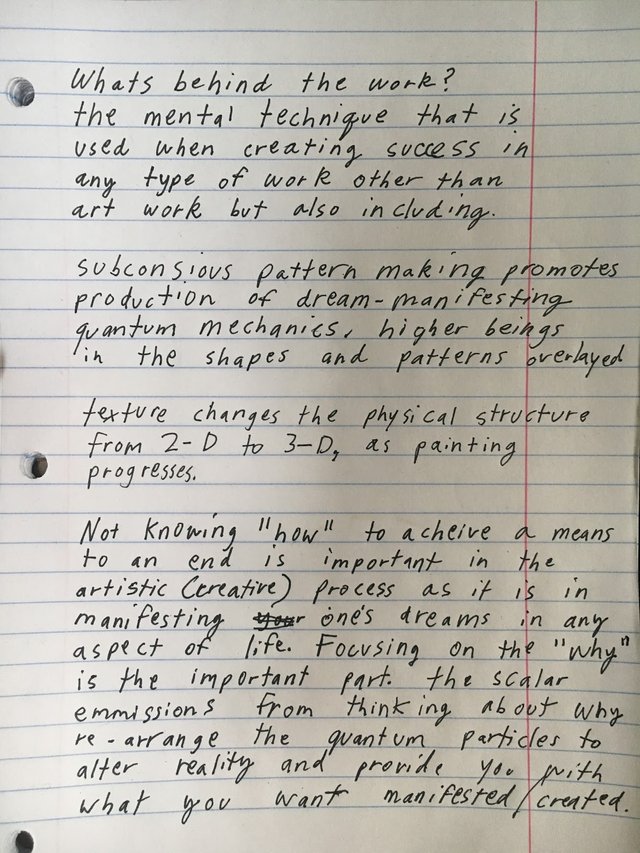 Whats behind the work?
the mental technique that is
used when creating success in
any type of work other than
art work but also including.
subconsious pattern making promotes
production of dream-manifesting
quantum mechanics, higher beings
in the shapes and patterns overlayed
texture changes the physical structure
from 2-D to 3-D, as painting
progresses.
Not knowing "how" to acheive a means
to an end is important in the
artistic (creative) process as it is in
manifesting your one's dreams in any
aspect of life. Focusing on the "why"
is the important part. the scalar
emmissions from thinking about why
re-arrange the quantum particles to
alter reality and provide you with
what you want manifested/created.